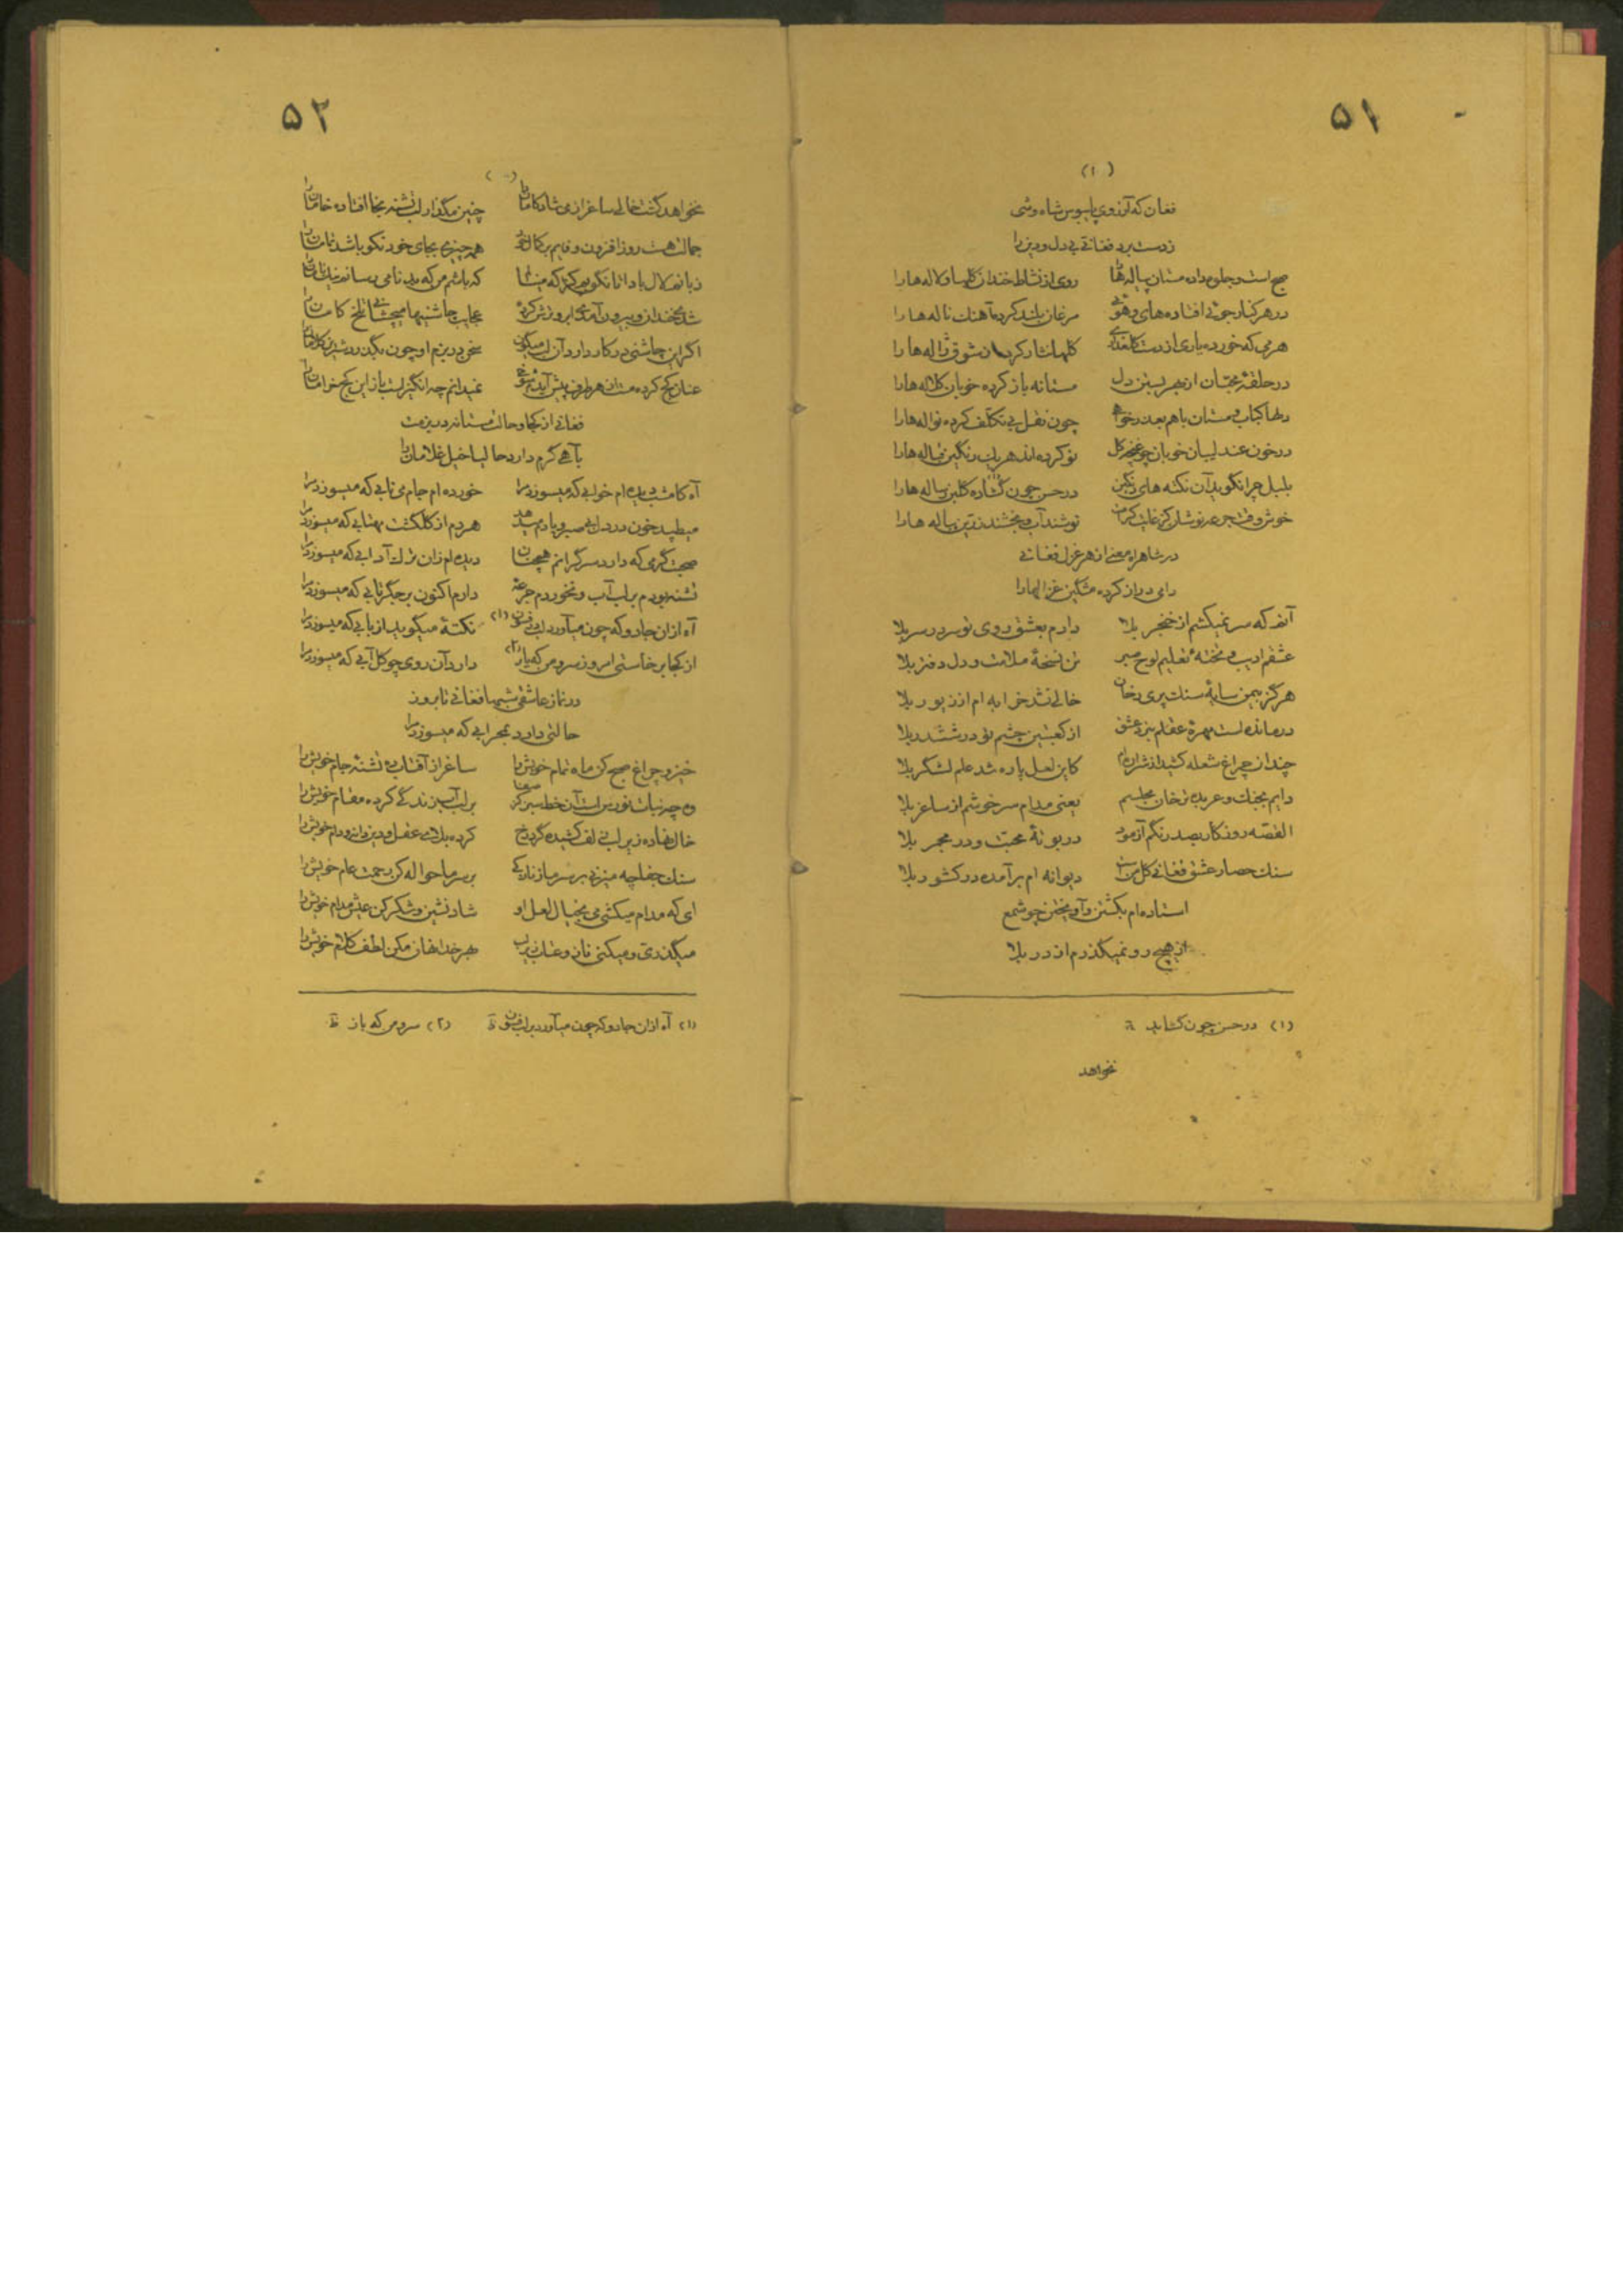 ۵۱
(۱)
فغان که آرزوی پابوس شاه وشی
ز دست برد فغانی بی دل و دین را
صبح است و جلوه داده مستان پیاله‌ها روی از نشاط خندان گلها و لاله ها را
در هر کنار جوئی افتاده های و هوئی مرغان بلند کرده آهنگ ناله ها را
هر می که خورده یاری از دست گلعذاری گلها نثار کرده از شوق ژاله ها را
در حلقهٔ محبان از بهر بستن دل مستانه باز کرده خوبان کلاله ها را
دلها کباب و مستان با هم چون نقل بی تکلف کرده نواله ها را
در خون عندلیبان خوبان چو غنچه گل نو کرده اند هر یک رنگین قباله ها را
بلبل چرا نگوید آن نکته های رنگین در حسن چون گشاده گلبن رساله ها را
خوش وقت جرعه نوشان کز غایت کرم نوشند آب و بخشند زرین پیاله ها را
در شاهراه معنی از هر غزل فغانی
دامی دراز کرده مشکین غزالها را
آنم که سر نمیکشم از خنجر بلا دارم بعشق روی تو سر در سر بلا
عشقم ادیب و تخته تعلیم لوح صبر تن نسخهٔ ملامت و دل دفتر بلا
هرگز بیمن سایهٔ سنگ پری رخان خالی نشد خرابه ام از زیور بلا
درمانده است مهره عقلم بنرد عشق از کعبتین چشم تو در ششدر بلا
چندان چراغ شعله کشید از شراب کاین لعل پاره شد علم لشگر بلا
دایم بجنگ و عربده ترخان مجلسیم یعنی مدام سرخوشم از ساغر بلا
القصه روزگار بصد رنگم آزمود در بوتهٔ محبت و در مجمر بلا
سنگ حصار عشق فغانی گل من است دیوانه ام برآمده در کشور بلا
استاده ام بکشتن و آویختن چو شمع
از هیچ رو نمیگذرم از در بلا
(۱) در حسن چون گشاید
نخواهد
۵۲
نخواهد گشت خالی ساغر از می شادکامان را چنین مگذار لب تشنه بجا افتاده خامان را
جمالت هست روز افزون و قایم بر کمال خود همه چیزی بجای خود نکو باشد تمامان را
زبانم لال بادا تا نگویم که باشم من که بدنامی رسانم نیکنامان را
شدی خندان و بیرون آمدی ابرو ترش کرده عجایب چاشنیها میچشانی تلخ کامان را
اگر این چاشنی در کار دارد آن لب میگون نمی در بزم او چون بگذرد شیرین کلامان را
عنان کج کرده مست از هر طرف پیش آیدم شوخی نمیدانم چه انگیز است باز این کج خرامان را
فغانی از کجا و حالت مستانه در بزمت
بآهی گرم دارد حالیا خیل غلامان را
آه کامشب دیده ام خوابی که میسوزد مرا خورده ام جام می نابی که میسوزد مرا
میطپید خون در دل بی صبر و یادم میدهد هر دم از گلگشت مهتابی که میسوزد مرا
صحبت گرمی که دارد سرگرانم همچنان دیده ام زان ترک آدابی که میسوزد مرا
تشنه بودم بر لب آب و نخوردم جرعهٔ دارم اکنون بر جگر تابی که میسوزد مرا
آه از آن جادو که چون میآورد لب در فسون (۱) نکتهٔ میگوید از بابی که میسوزد مرا
از کجا برخاستی امروز سرو من که باز (۲) دارد آن روی چو گل آبی که میسوزد مرا
در نماز عاشقی شبها فغانی تا بروز
حالتی دارد بمحرابی که میسوزد مرا
خیز و چراغ صبح کن ماه تمام خویش را ساغر از آفتاب ده تشنهٔ جام خویش را
وه چه نبات نورس است آن خط سبز بر لب آب زندگی کرده مقام خویش را
خال نهاده زیر لب زلف کشیده گرد رخ کرده بلای عقل و دین دانه و دام خویش را
سنگ جفا چه میزنی بر سر ما ز نازکی بر سر ما حواله کن رحمت عام خویش را
ای که مدام میکشی می بخیال لعل او شاد نشین و شکر کن عیش مدام خویش را
میگذری و میکنی ناز و عتاب زیر لب بهر خدا نهان مکن لطف کلام خویش را
(۱) آه از آن جادو که چون میآورد بر لب فسون ظ (۲) سرو من که باز ظ